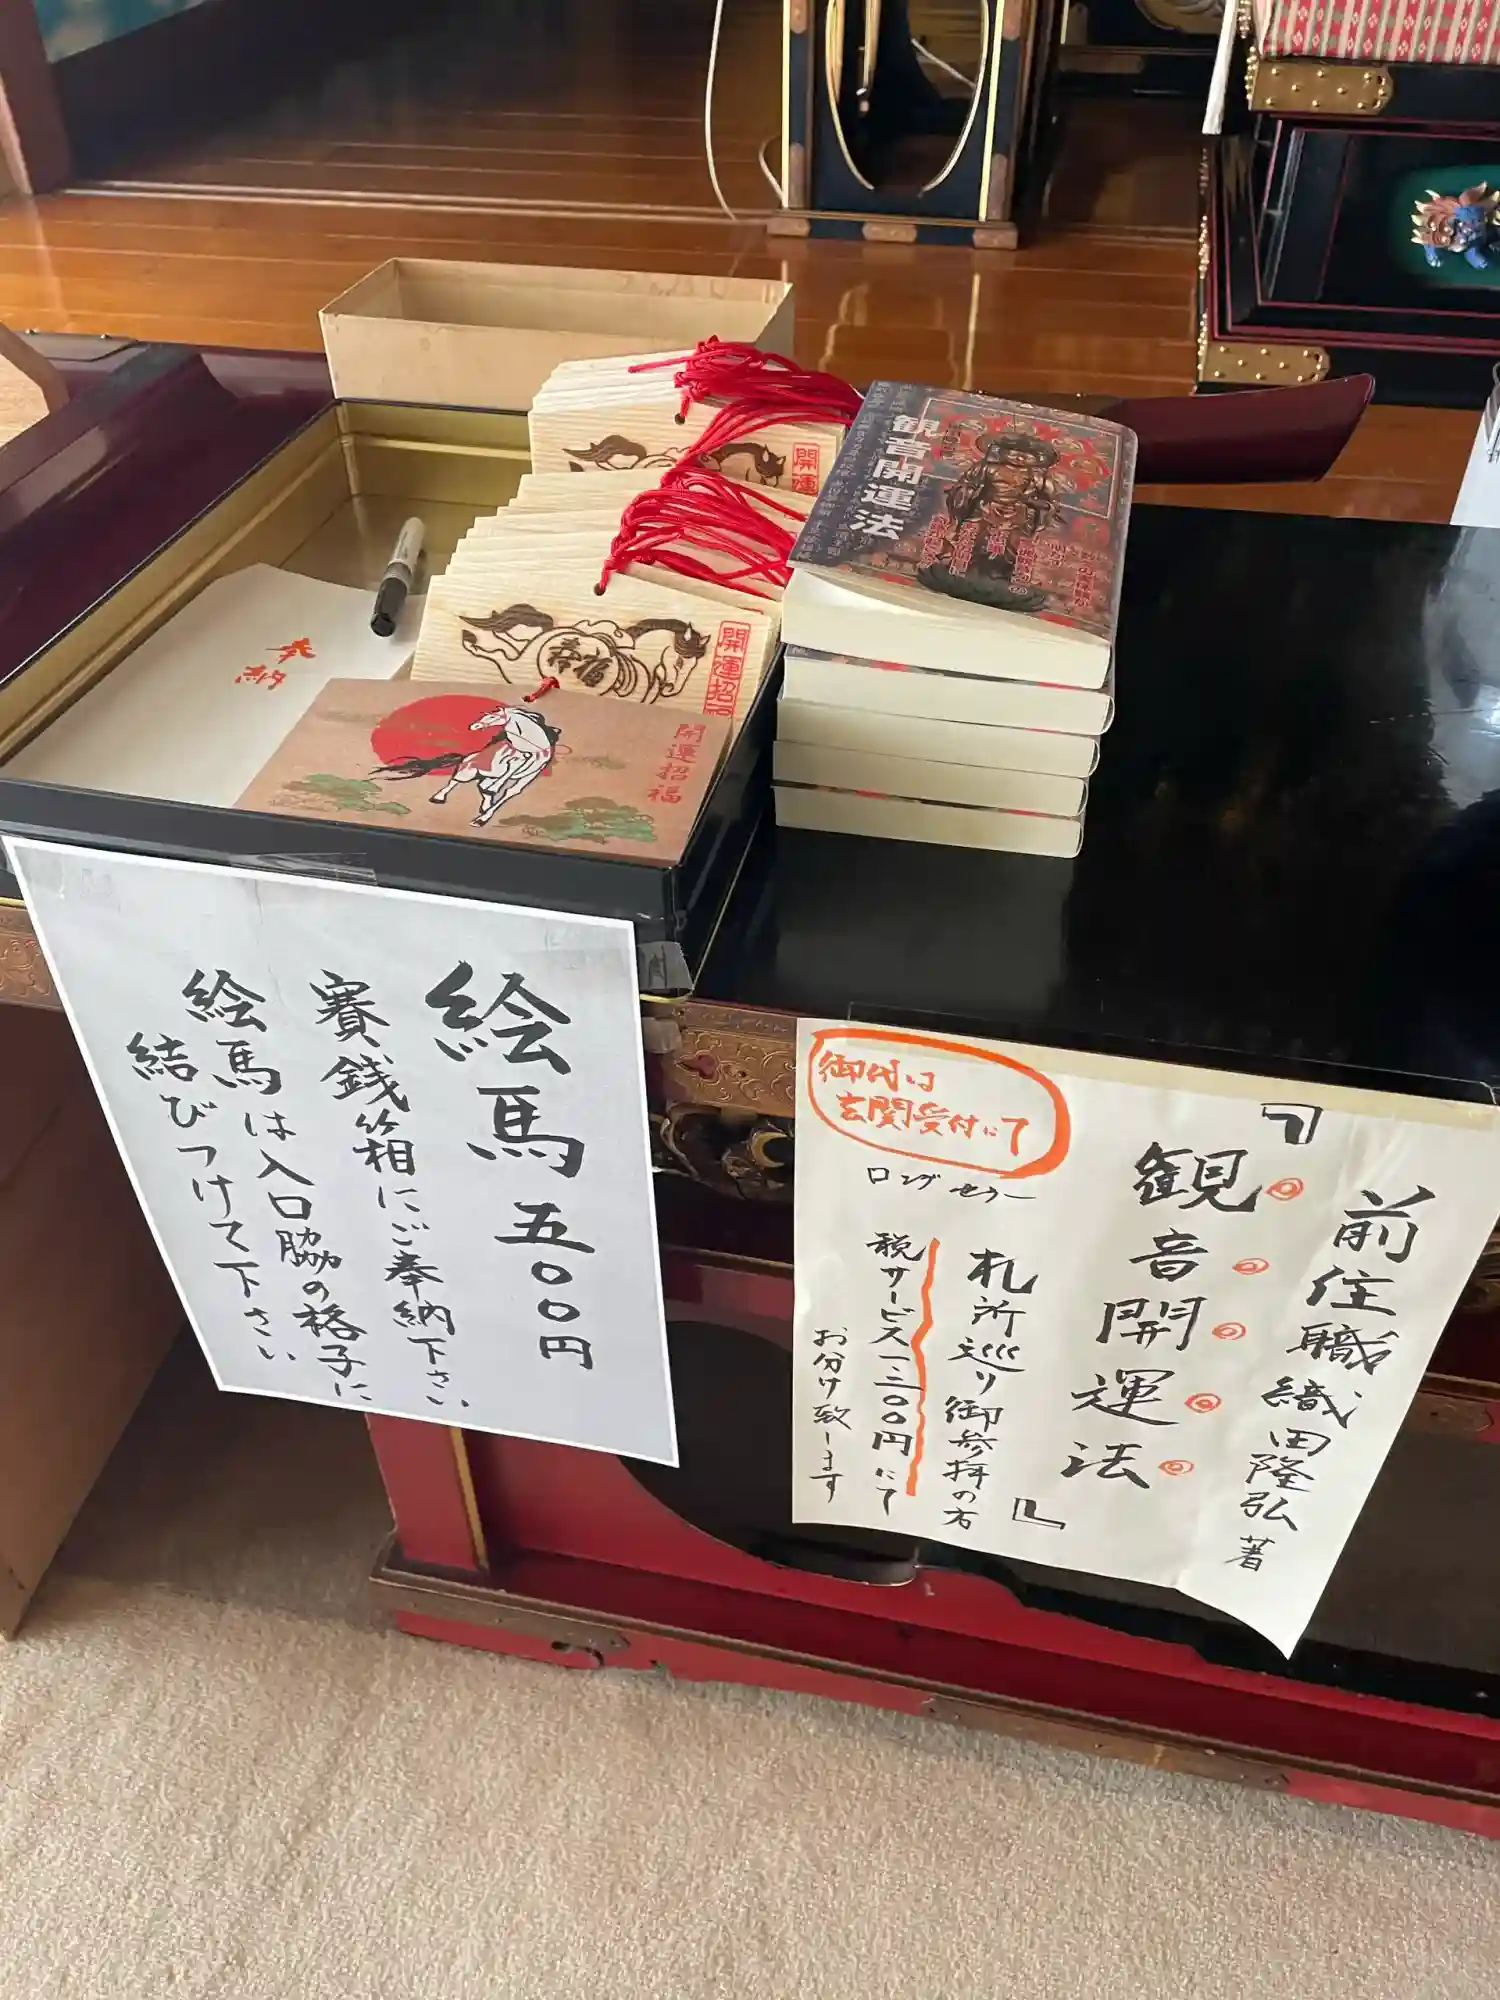 観音開運法
開運
開運招福
寿福
開運招福
奉納
絵馬 五〇〇円
賽銭箱にご奉納下さい
絵馬は入口脇の格子に
結びつけて下さい
前住職 織田隆弘 著
『観音開運法』
札所巡り御参拝の方
税サービス一三〇〇円にて
お分け致します
ロングセラー
御代は
玄関受付にて